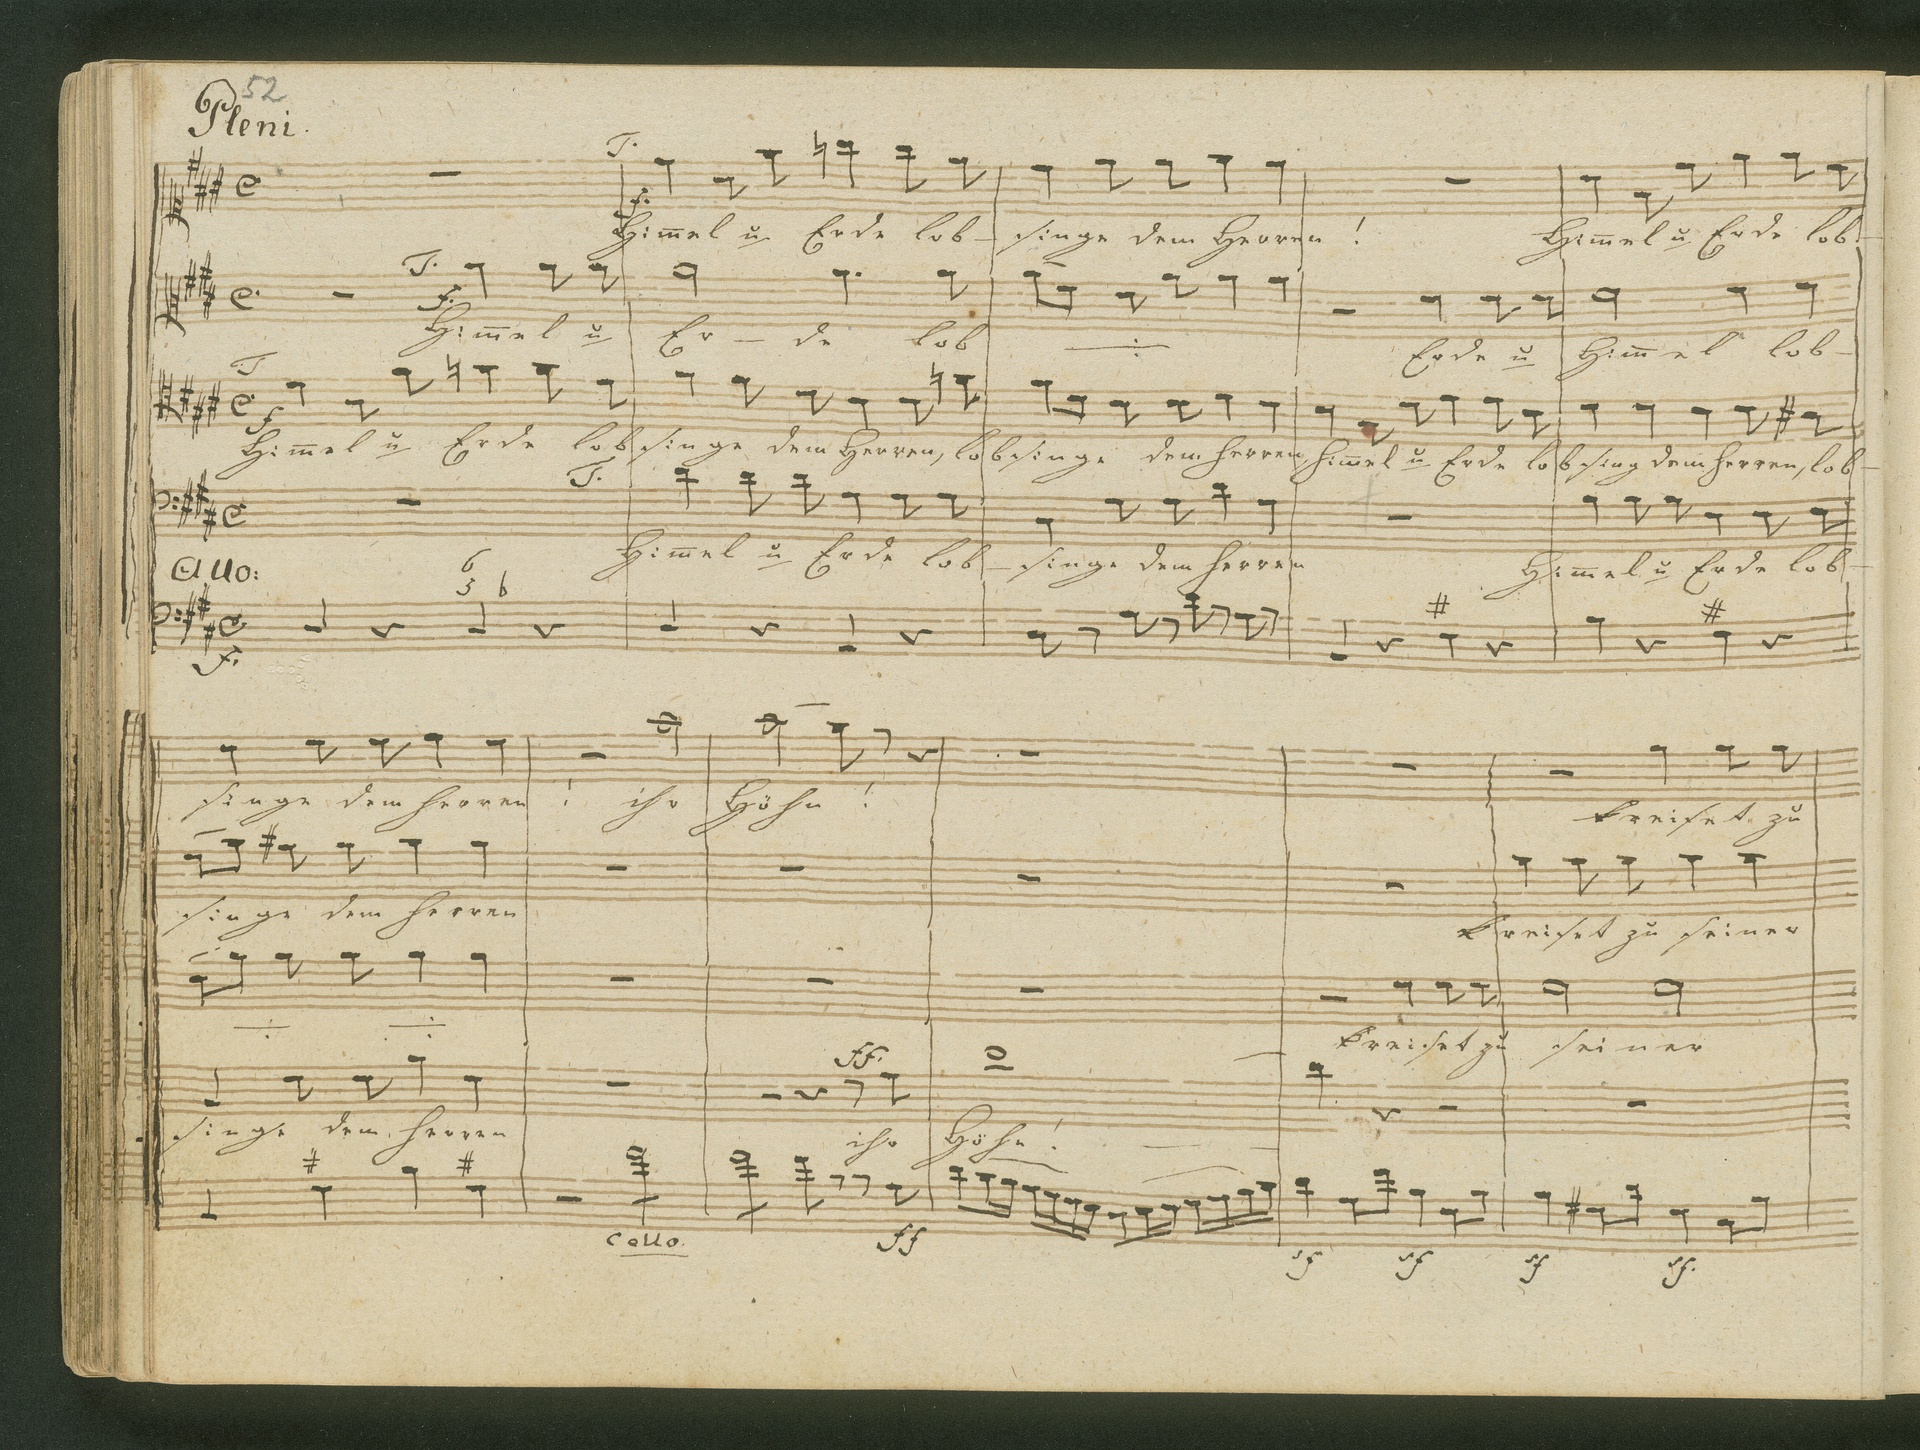 52
Pleni.
T.
f.
Him̅el u Erde lob- singe dem Herren! Him̅el u Erde lob-
T.
f.
Him̅el u Er - de lob Erde u Him̅el lob-
T
f
Him̅el u Erde lobsinge dem Herren, lobsinge dem herren, him̅el u Erde lobsing dem herren, lob-
T.
Him̅el u Erde lob- singe dem herren Him̅el u Erde lob-
Allo:
6
5 b
f.
singe dem herren! ihr Höhn! kreiset zu
singe dem herren kreiset zu seiner
kreiset zu seiner
ff.
singe dem herren ihr Höhn!
Cello.
ff
sf sf sf sf.